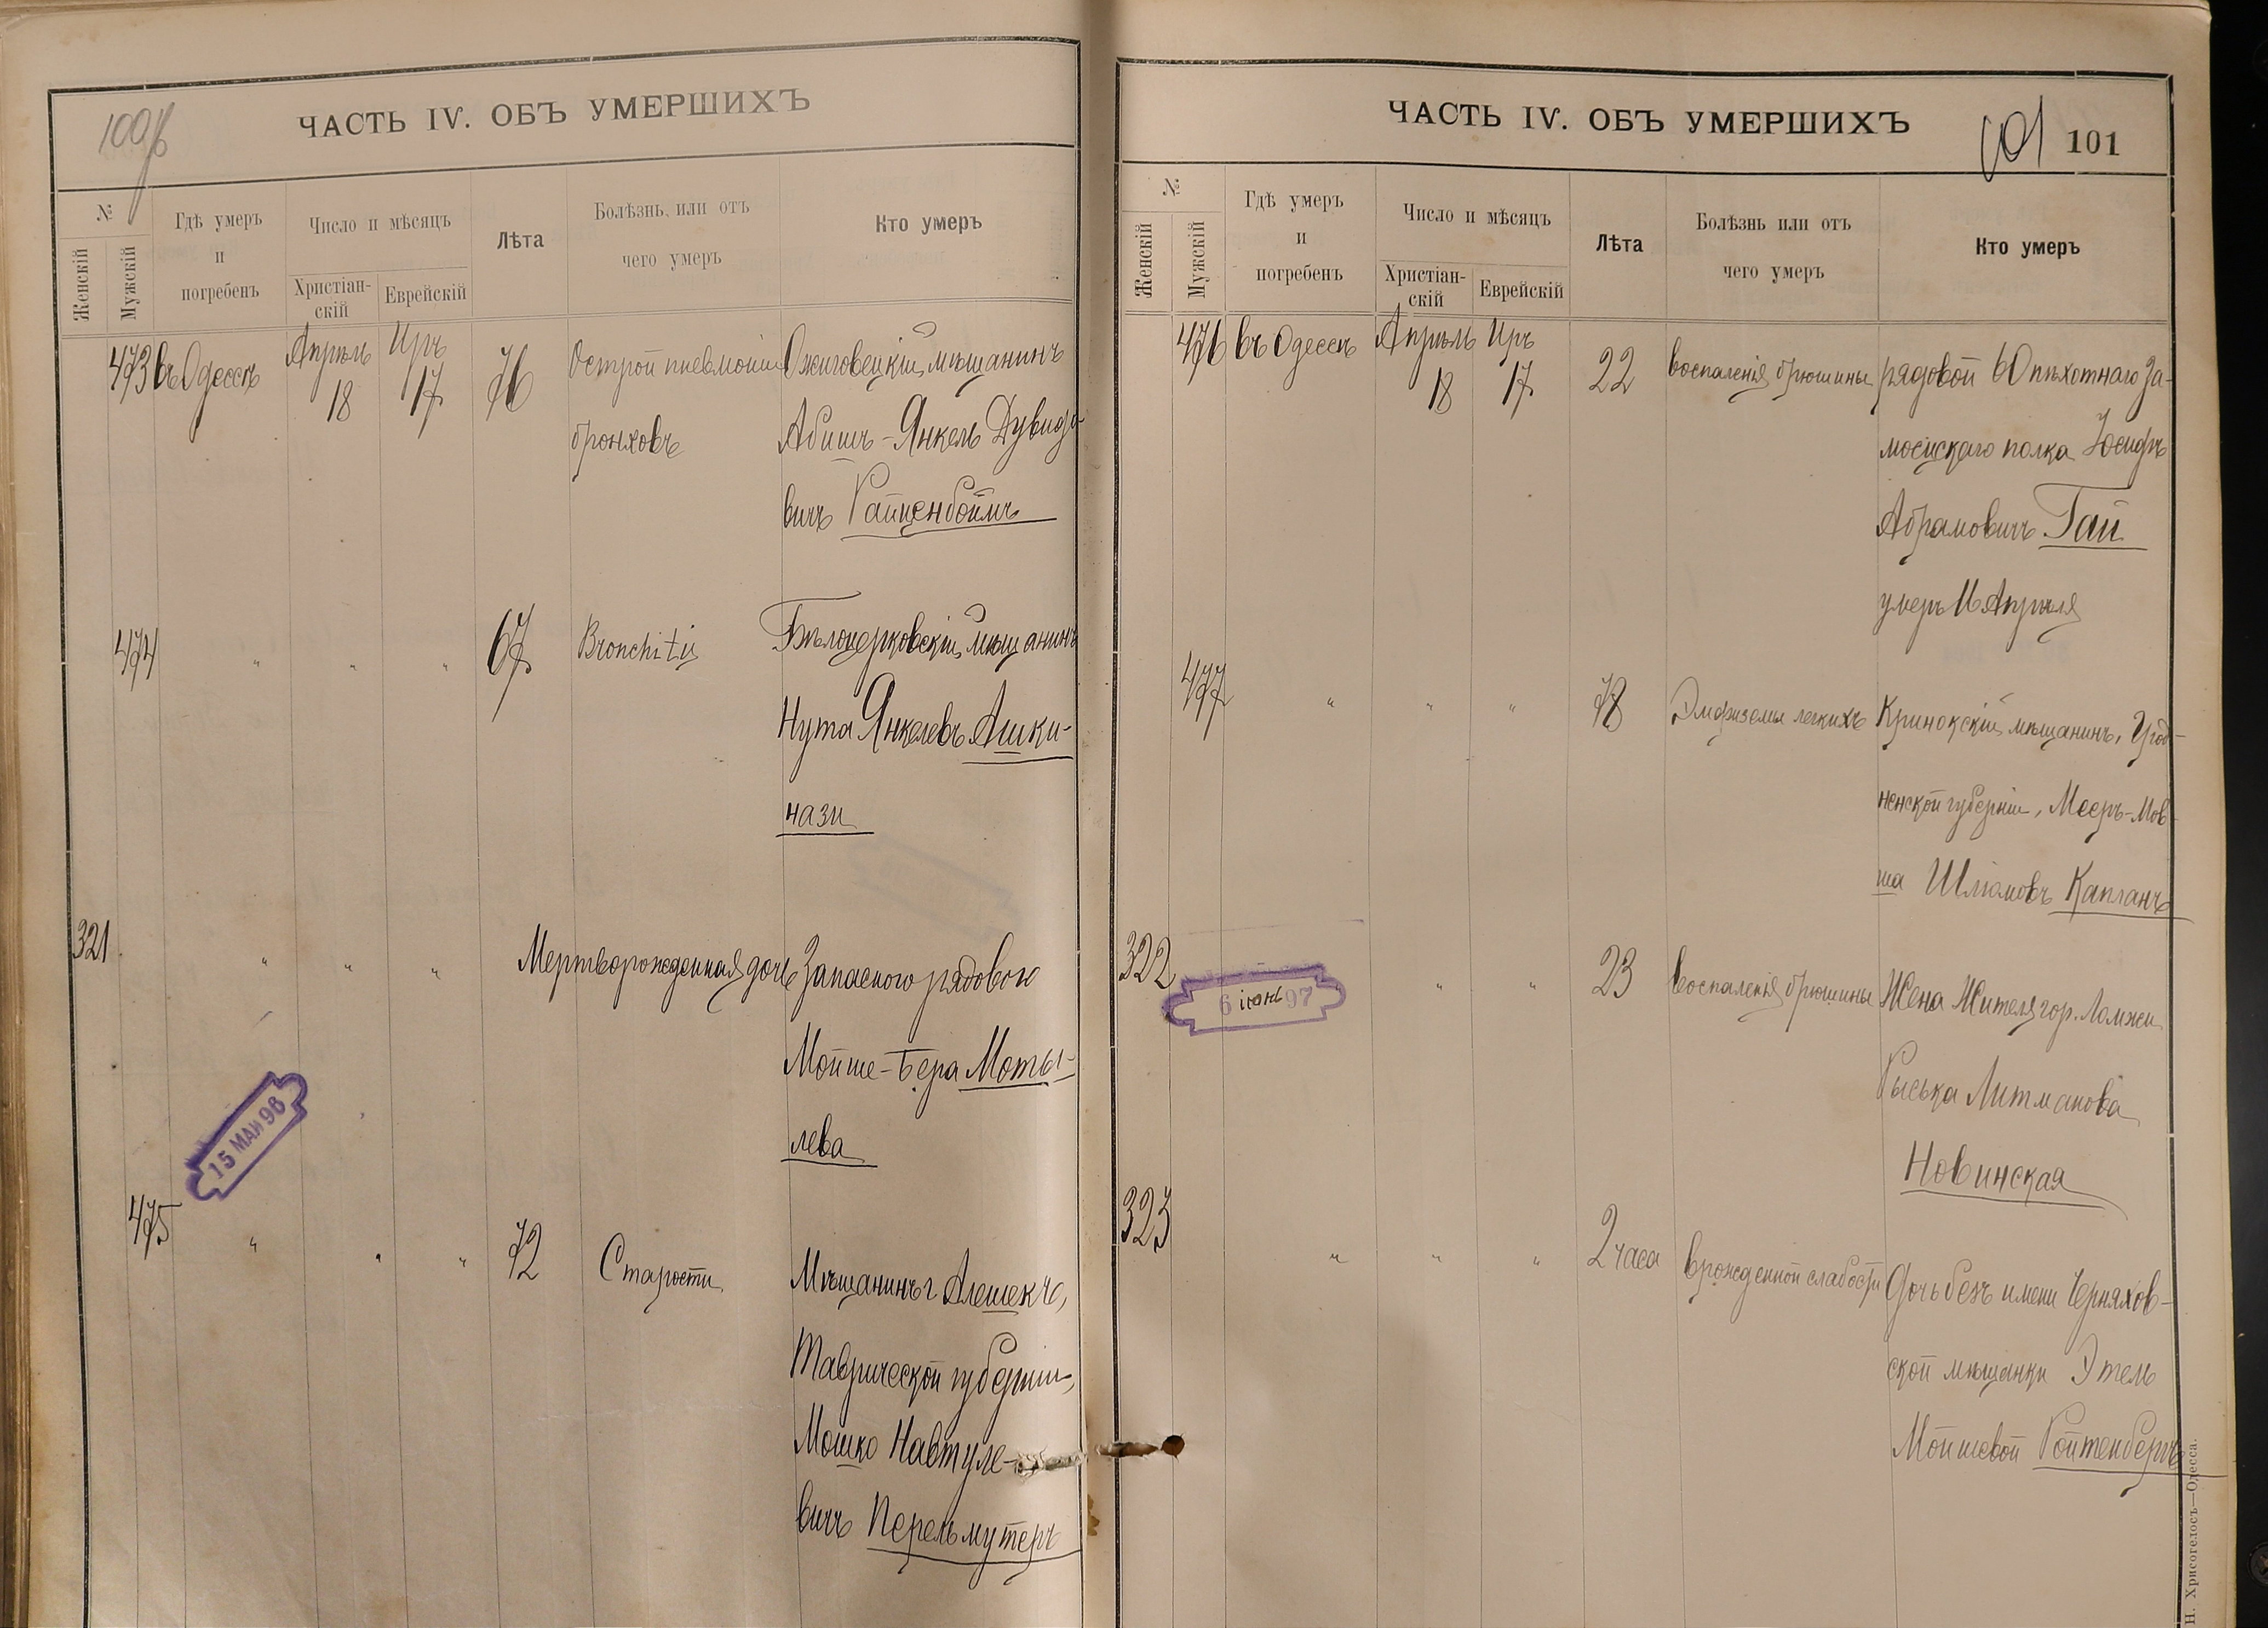 100об
ЧАСТЬ IV. ОБЪ УМЕРШИХЪ
№
Женскій
Мужскій
Гдѣ умеръ
и
погребенъ
Число и мѣсяцъ
Христіан-
скій
Еврейскій
Лѣта
Болѣзнь, или отъ
чего умеръ
Кто умеръ
473 въ Одессѣ Апрѣль 18 Иръ 17 76 Острой пневмоніи Ожиговецкій мѣщанинъ
бронховъ Абишъ-Янкель Дувидо
вичъ Райценбоймъ
474 " " " 67 Bronchitis Бѣлоцерковскій мѣщанинъ
Нута Янкелевъ Ашки-
нази
321 " " " Мертворожденная дочь Запасного рядового
Мойше-Бера Моты-
лева
15 МАЙ 96
475 " " " 72 Старости Мѣщанинъ г. Алешекъ,
Таврической губерніи,
Мошко Навтуле-
вичъ Перельмутеръ
ЧАСТЬ IV. ОБЪ УМЕРШИХЪ
101 101
№
Женскій
Мужскій
Гдѣ умеръ
и
погребенъ
Число и мѣсяцъ
Христіан-
скій
Еврейскій
Лѣта
Болѣзнь или отъ
чего умеръ
Кто умеръ
476 въ Одессѣ Апрѣль 18 Иръ 17 22 воспаленія брюшины рядовой 60 пѣхотнаго За-
мосцскаго полка Іосифъ
Абрамовичъ Гай
умеръ 16 Апрѣля
477 " " " 78 Эмфиземы легкихъ Кринокскій мѣщанинъ, Грод-
ненской губерніи, Мееръ-Мов-
ша Шліомовъ Капланъ
322 " " 23 воспаленія брюшины Жена Жителя гор. Ломжи
6 іюнь 97
Рыська Литманова
Новинская
323 " " " 2 часа врожденной слабости Дочь безъ имени Черняхов-
ской мѣщанки Этель
Мойшевой Ройтенбергъ
Н. Хрисогелосъ—Одесса.